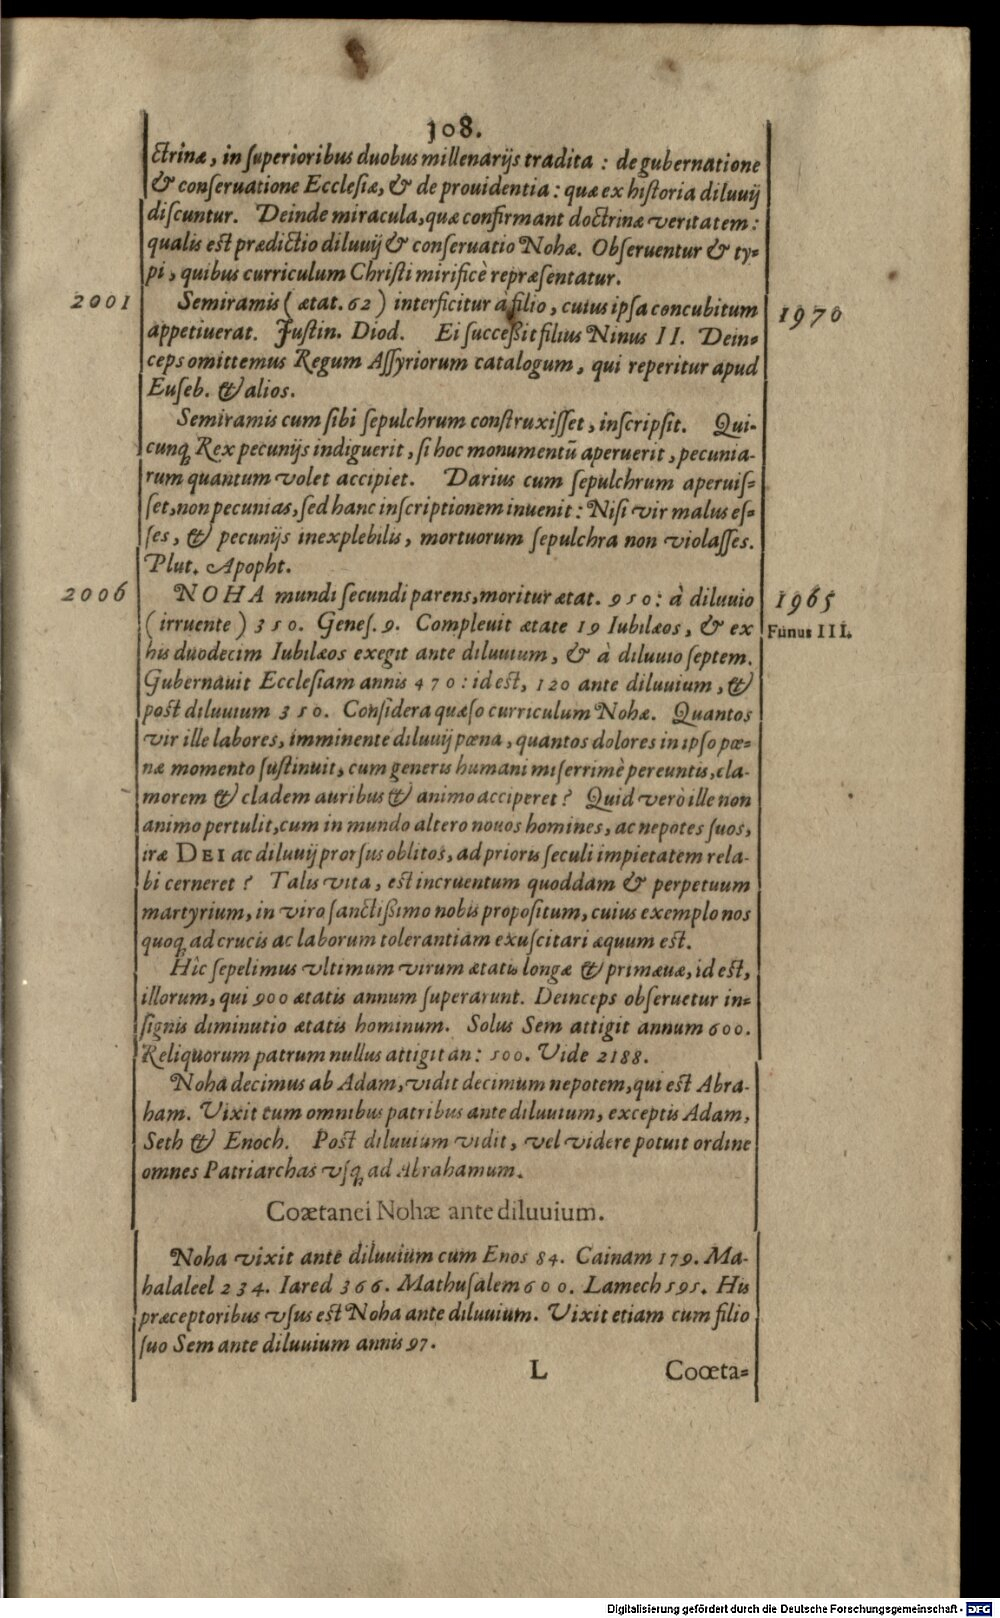 108.
ctrinæ, in ſuperioribus duobus millenarijs tradita : de gubernatione
& conſeruatione Eccleſiæ, & de prouidentia : quæ ex hiſtoria diluuij
diſcuntur. Deinde miracula, quæ confirmant doctrinæ veritatem :
qualis eſt prædictio diluuij & conſeruatio Nohæ. Obſeruentur & ty=
pi, quibus curriculum Chriſti mirificè repræſentatur.
2001 Semiramis ( ætat. 62 ) interficitur à filio, cuius ipſa concubitum 1970
appetiuerat. Juſtin. Diod. Ei ſucceßit filius Ninus II. Dein=
ceps omittemus Regum Aſſyriorum catalogum, qui reperitur apud
Euſeb. & alios.
Semiramis cum ſibi ſepulchrum conſtruxiſſet, inſcripſit. Qui-
cunq Rex pecunijs indiguerit, ſi hoc monumentũ aperuerit, pecunia-
rum quantum volet accipiet. Darius cum ſepulchrum aperuiſ=
ſet, non pecunias, ſed hanc inſcriptionem inuenit : Niſi vir malus eſ=
ſes, & pecunijs inexplebilis, mortuorum ſepulchra non violaſſes.
Plut. Apopht.
2006 NOHA mundi ſecundi parens, moritur ætat. 950 : à diluuio 1965
(irruente) 350. Geneſ. 9. Compleuit ætate 19 Iubilæos, & ex Funus III.
his duodecim Iubilæos exegit ante diluuium, & à diluuio ſeptem.
Gubernauit Eccleſiam annis 470 : id eſt, 120 ante diluuium, &
poſt diluuium 350. Conſidera quæſo curriculum Nohæ. Quantos
vir ille labores, imminente diluuij pœna, quantos dolores in ipſo pœ=
næ momento ſuſtinuit, cum generis humani miſerrimè pereuntis, cla-
morem & cladem auribus & animo acciperet? Quid verò ille non
animo pertulit, cum in mundo altero nouos homines, ac nepotes ſuos,
iræ DEI ac diluuij prorſus oblitos, ad prioris ſeculi impietatem rela-
bi cerneret? Talis vita, eſt incruentum quoddam & perpetuum
martyrium, in viro ſanctißimo nobis propoſitum, cuius exemplo nos
quoq ad crucis ac laborum tolerantiam exuſcitari æquum eſt.
Hîc ſepelimus vltimum virum ætatis longæ & primæuæ, id eſt,
illorum, qui 900 ætatis annum ſuperarunt. Deinceps obſeruetur in=
ſignis diminutio ætatis hominum. Solus Sem attigit annum 600.
Reliquorum patrum nullus attigit an : 500. Vide 2188.
Noha decimus ab Adam, vidit decimum nepotem, qui eſt Abra-
ham. Vixit cum omnibus patribus ante diluuium, exceptis Adam,
Seth & Enoch. Poſt diluuium vidit, vel videre potuit ordine
omnes Patriarchas vſq ad Abrahamum.
Coætanei Nohæ ante diluuium.
Noha vixit ante diluuium cum Enos 84. Cainam 179. Ma-
halaleel 234. Iared 366. Mathuſalem 600. Lamech 595. His
præceptoribus vſus eſt Noha ante diluuium. Vixit etiam cum filio
ſuo Sem ante diluuium annis 97.
L Coœta=
Digitalisierung gefördert durch die Deutsche Forschungsgemeinschaft - DFG